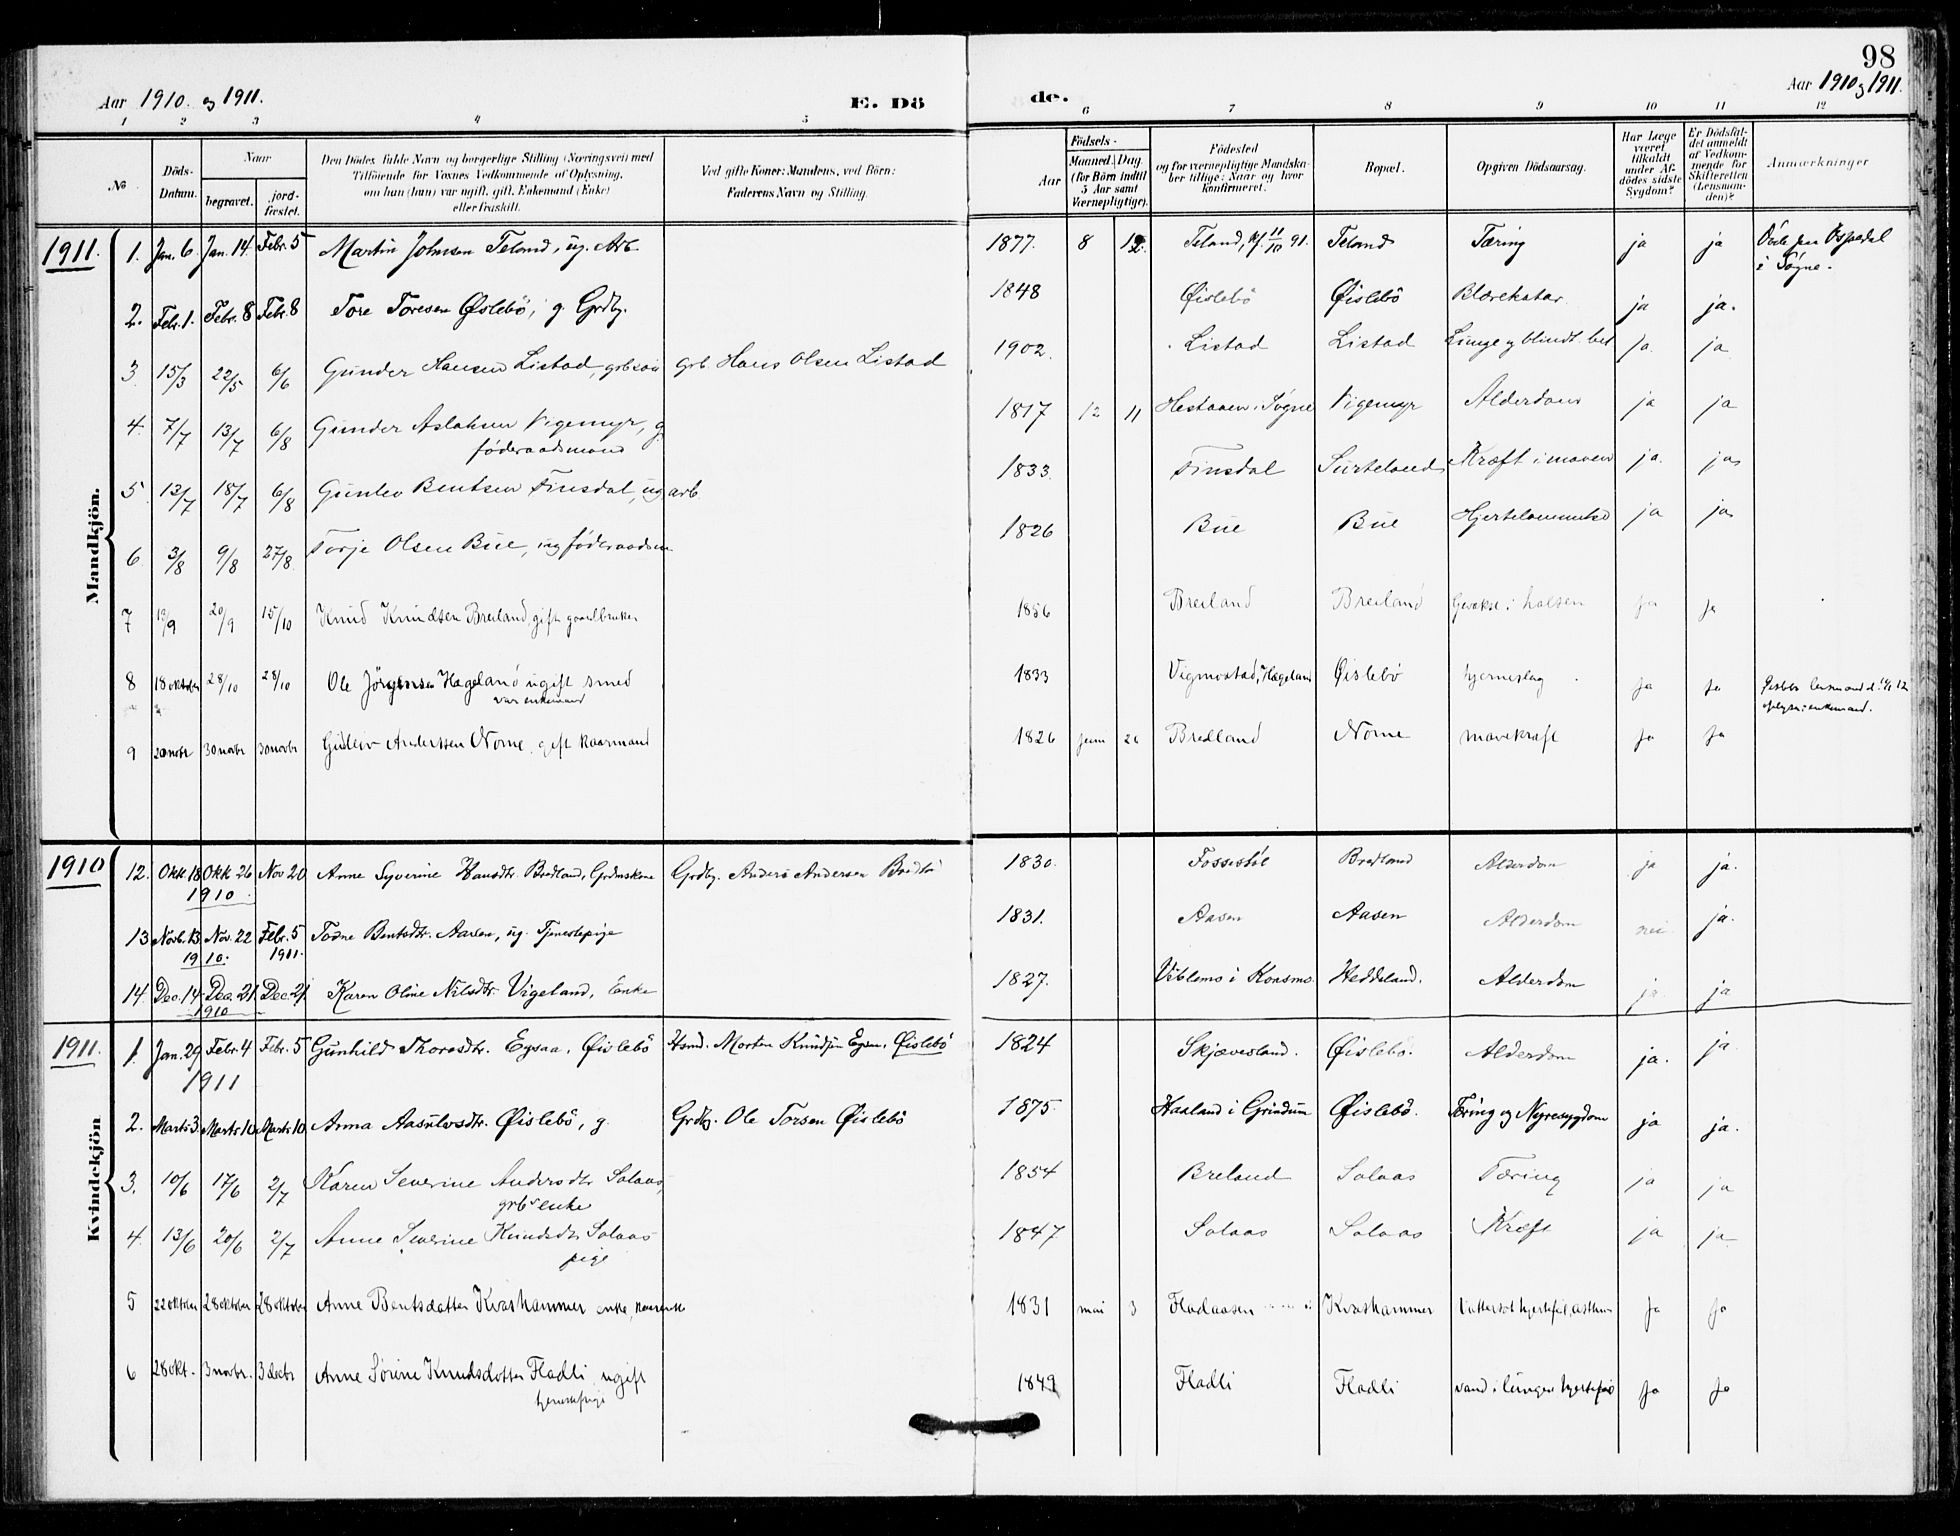 98
Aar 1910 og 1911. E. Dö de. Aar 1910 og 1911.
1 2 3 4 5 6 7 8 9 10 11 12
No
Döds-Datum.
Naar
begravet.
jord-fæstet.
Den Dödes fulde Navn og borgerlige Stilling (Næringsvei) med
Tilföiende for Voxnes Vedkommende af Oplysning,
om han (hun) var ugift, gift, Enkemand (Enke)
eller fraskilt.
Ved gifte Koner: Mandens, ved Börn:
Faderens Navn og Stilling.
Födsels-
Aar
Maaned. Dag.
(for Börn indtil
5 Aar samt
Værnepligtige).
Födested
og for værnepligtige Mandska-
ber tillige: Naar og hvor
konfirmeret.
Bopæl.
Opgiven Dödsaarsag.
Har Læge
været
tilkaldt
under Af-
dödes sidste
Sygdom?
Er Dödsfal-
det anmeldt
af Vedkom-
mende for
Skifteretten
(Lensman-
den)?
Anmærkninger
Mandkjön.
1911. 1. Jan. 6. Jan. 14. Febr. 5 Martin Johnsen Teland, ug. Arb. 1877. 8 12. Teland, kf. 11/10 91. Teland Tæring ja ja Döde paa Hospedal
i Søgne.
2. Febr. 1. Febr. 8 Febr. 8 Tore Toresen Øislebö, g. Grdbr. 1848 Øislebö Øislebö Blærekatar ja ja.
3. 15/3 22/5 6/6 Gunder Hansen Listad, grbsøn grb. Hans Olsen Listad 1902. Listad Listad Lunge og blindt. bet ja. ja
4. 7/7 13/7 6/8 Gunder Aslaksen Vigemyr, g.
føderaadsmand 1817 12 11 i Søgne Vigemyr Alderdom ja ja
5. 12/7 18/7 6/8 Gunlev Bentsen Finsdal, ug arb. 1833. Finsdal Surteland Kræft i maven ja. ja
6 3/8 9/8 27/8. Torje Olsen Bue, ug føderaadsm 1826 Bue Bue ja ja
7 13/9 20/9 15/10 Knud Knudsen Breiland, gift gaardbruker 1856 Breiland Breiland Gevækst i halsen ja ja
8 18 oktober 28/10 28/10 Ole Jörgensen Hægeland ugift smed
var enkemand 1833 Vigmostad, Hægeland Øislebö hjerneslag ja ja
enkemand.
9 20 novbr 30 novbr 30 novbr Gunlev Anderssen Nome, gift kaarmand 1826 juni 26 Bredland Nome mavekræft ja ja
Kvindekjön
1910 12. Okt. 18 Okt. 26 Nov 20 Anne Syverine Hansdtr. Bredland, Grdmskone Grdbr. Anders Andersen Bredland 1830. Fossestöl Bredland Alderdom ja ja.
1910
13 Novb. 13 Nov. 22 Febr. 5 Tone Bentsdtr. Aasen, ug. Tjenestepige 1831. Aasen Aasen Alderdom nei ja.
1910. 1911.
14. Dec. 14. Dec. 21. Dec. 21 Karen Oline Nilsdtr. Vigeland, Enke 1827. Viblemo i Konsmo Heddeland. Alderdom ja. ja
1910
1911. 1. Jan. 29 Febr. 4 Febr. 5 Gunhild Thoresdtr. Eysaa, Øislebö Hsmd. Morten Knudsen Eysaa, Øislebö 1824 Skjævesland. Øislebö. Alderdom ja. ja.
1911
2. Marts 3. Marts 10 Marts 10 Anna Aasulvsdtr. Øislebö, g. Grdbr. Ole Torsen Øislebö 1875. Haaland i Grindum Øislebö. Tæring og Nyresygdom ja ja.
3. 10/6 17/6 2/7 Karen Severine Andersdtr Solaas,
grbs enke 1854 Breland Solaas Tæring ja ja
4. 13/6 20/6 2/7 Anne Severine Knudsdtr Solaas
pige 1847 Solaas Solaas Kræft ja ja
5 22 oktober 28 oktober 28 oktober Anne Bentsdatter Kvashammer enke, 1831 mai 3 Fladaasen Kvashammer Vattersot hjertefeil, asthma ja ja
6 28 okt. 3 novbr. 3 decbr Anne Sörine Knudsdatter Fladli, ugift
tjenestepige 1849 Fladli Fladli vand i lungen hjertefeil ja ja